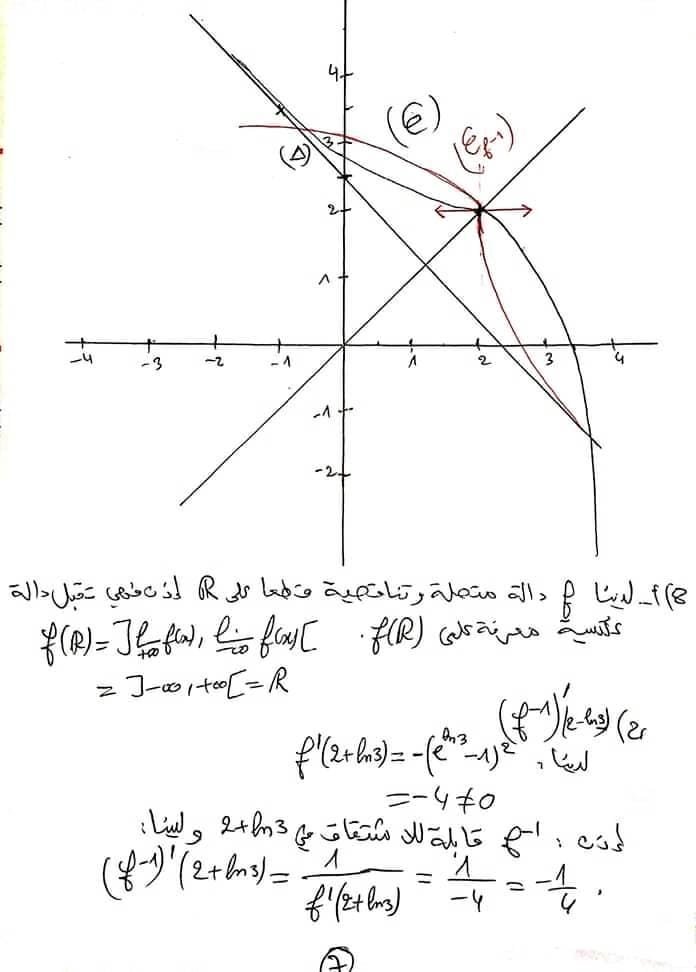 4
(C)
(C f⁻¹)
3
(Δ)
2
1
-4 -3 -2 -1 0 1 2 3 4
-1
-2
8) 1_ لدينا f دالة متصلة وتناقصية قطعا على R إذن فهي تقبل دالة
عكسية معرفة على f(R). f(R) = ]lim +∞ f(x), lim -∞ f(x)[
= ]-∞, +∞[ = R
2) (f⁻¹)'(2-ln3)
لدينا: f'(2+ln3) = -(e^ln3 -1)²
= -4 ≠ 0
إذن: f⁻¹ قابلة للاشتقاق في 2+ln3 ولدينا:
(f⁻¹)'(2+ln3) = 1/f'(2+ln3) = 1/-4 = -1/4.
7